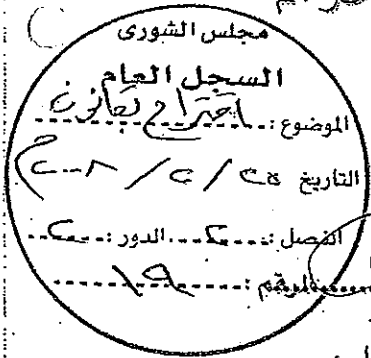 مجلس الشورى
السجل العام
الموضوع: اقتراح بقانون
التاريخ ٢٥ / ٢ / ٢٠٠٨ م
الفصل: ٢ الدور: ٢
الرقم: ١٩